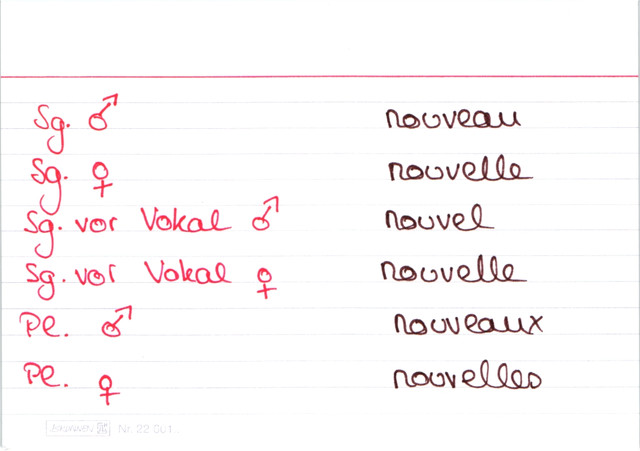 Sg. ♂ nouveau
Sg. ♀ nouvelle
Sg. vor Vokal ♂ nouvel
Sg. vor Vokal ♀ nouvelle
Pl. ♂ nouveaux
Pl. ♀ nouvelles
Nr. 22 001